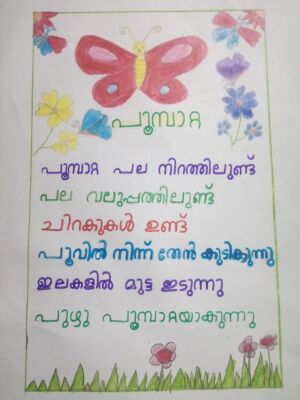 പൂമ്പാറ്റ
പൂമ്പാറ്റ പല നിറത്തിലുണ്ട്
പല വലുപ്പത്തിലുണ്ട്
ചിറകുകൾ ഉണ്ട്
പൂവിൽ നിന്ന് തേൻ കുടിക്കുന്നു
ഇലകളിൽ മുട്ട ഇടുന്നു
പുഴു പൂമ്പാറ്റയാകുന്നു